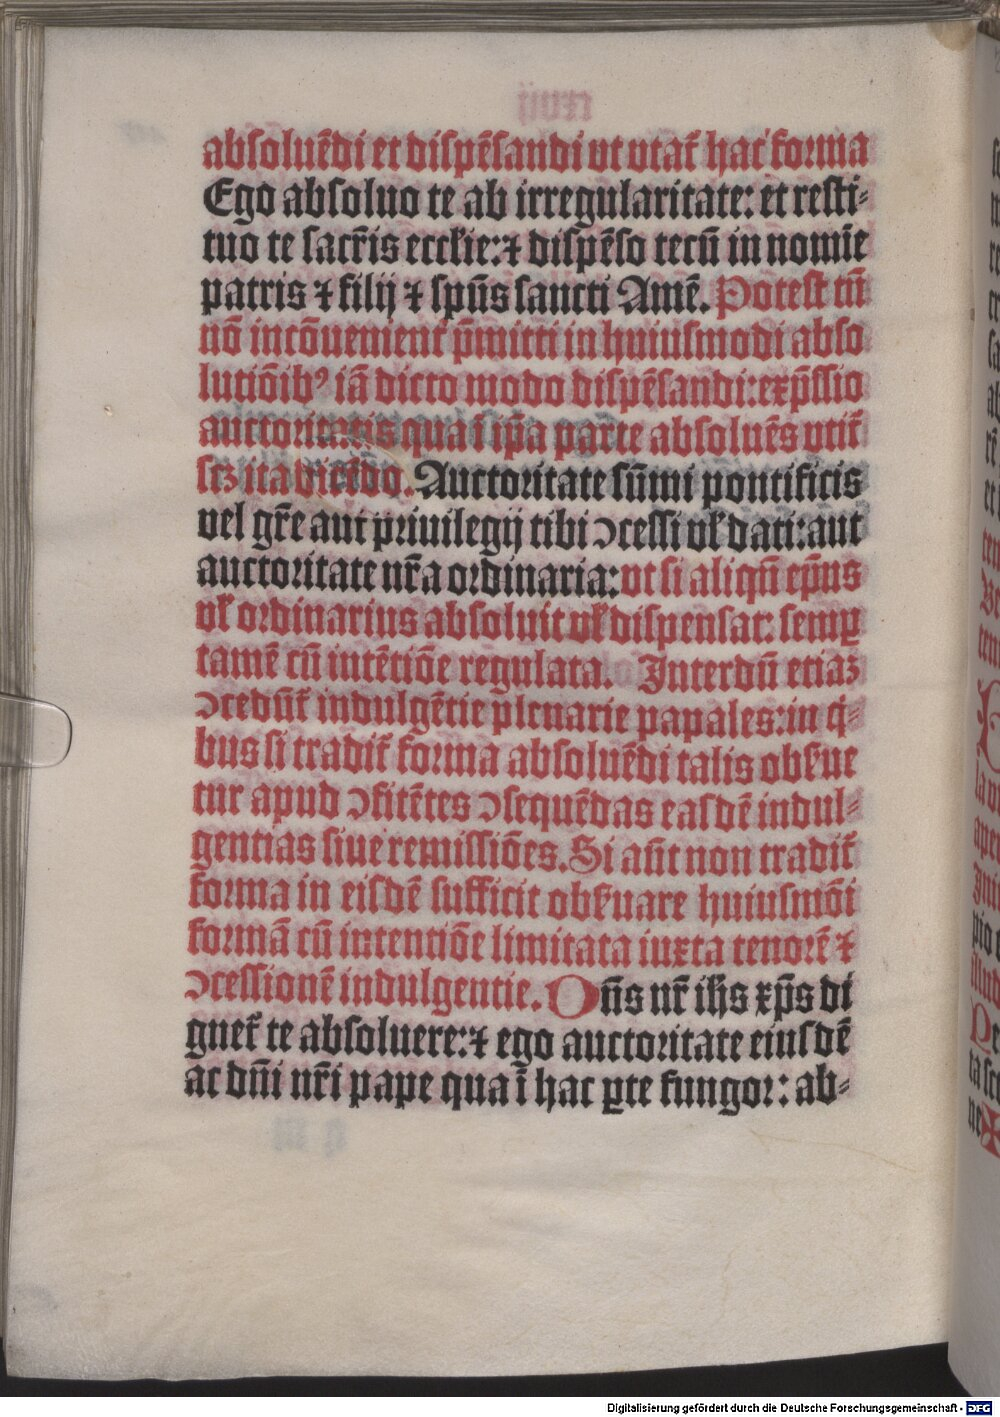 absoluēdi et dispēsandi vt vtat᷑ hac forma
Ego absoluo te ab irregularitate: et resti⸗
tuo te sacr̄is eccl̄ie: ⁊ dispēso tecū in nomīe
patris ⁊ filij ⁊ spūs sancti Amē. Potest tn̄
nō incōuenient᷑ p̄mitti in huiusmodi abso
lutiōibꝰ iā dicto modo dispēsandi: exp̄ssio
auctoritatis qua si ip̄a parte absoluēs vtit᷑
scꝫ ita dicēdo. Auctoritate sūmi pontificis
vel gr̄e aut priuilegij tibi ↄcessi vl̄ dati: aut
auctoritate nr̄a ordinaria: vt si aliqn̄ ep̄us
vl̄ ordinarius absoluit vl̄ dispensat: semꝑ
tamē cū intētiōe regulata. Interdū etiaꝫ
ↄcedūt᷑ indulgētie plenarie papales: in q̄⸗
bus si tradit᷑ forma absoluēdi talis obẜue
tur apud ↄfitētes ↄsequēdas easdē indul⸗
gentias siue remissiōes. Si aūt non tradit᷑
forma in eisdē sufficit obẜuare huiusmōi
formā cū intentiōe limitata iuxta tenorē ⁊
ↄcessionē indulgentie. Dn̄s nr̄ ih̄s xp̄s di
gnet᷑ te absoluere: ⁊ ego auctoritate eiusdē
ac dn̄i nr̄i pape qua ī hac ꝑte fungor: ab⸗
Digitalisierung gefördert durch die Deutsche Forschungsgemeinschaft - DFG